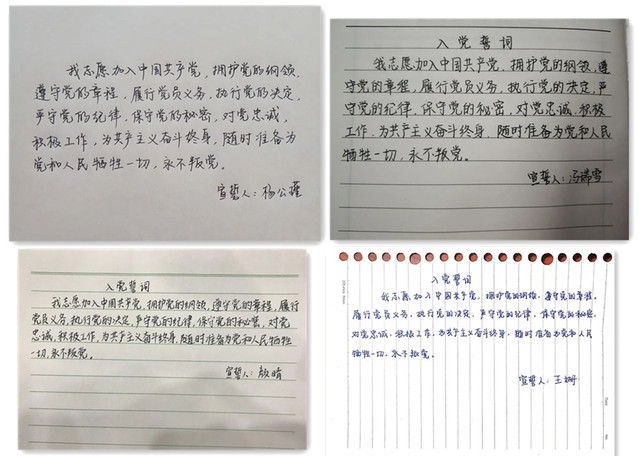 我志愿加入中国共产党，拥护党的纲领，
遵守党的章程，履行党员义务，执行党的决定，
严守党的纪律，保守党的秘密，对党忠诚，
积极工作，为共产主义奋斗终身，随时准备为
党和人民牺牲一切，永不叛党。
宣誓人：杨公瑾
入党誓词
我志愿加入中国共产党，拥护党的纲领，遵
守党的章程，履行党员义务，执行党的决定，严
守党的纪律，保守党的秘密，对党忠诚，积极
工作，为共产主义奋斗终身，随时准备为党和人民
牺牲一切，永不叛党。
宣誓人：冯瑞雪
入党誓词
我志愿加入中国共产党，拥护党的纲领，遵守党的章程，履行
党员义务，执行党的决定，严守党的纪律，保守党的秘密，对党
忠诚，积极工作，为共产主义奋斗终身，随时准备为党和人民牺牲
一切，永不叛党。
宣誓人：殷晴
入党誓词
我志愿加入中国共产党，拥护党的纲领，遵守党的章程，
履行党员义务，执行党的决定，严守党的纪律，保守党的秘密，
对党忠诚，积极工作，为共产主义奋斗终身，随时准备为党和人民
牺牲一切，永不叛党。
宣誓人：王姗